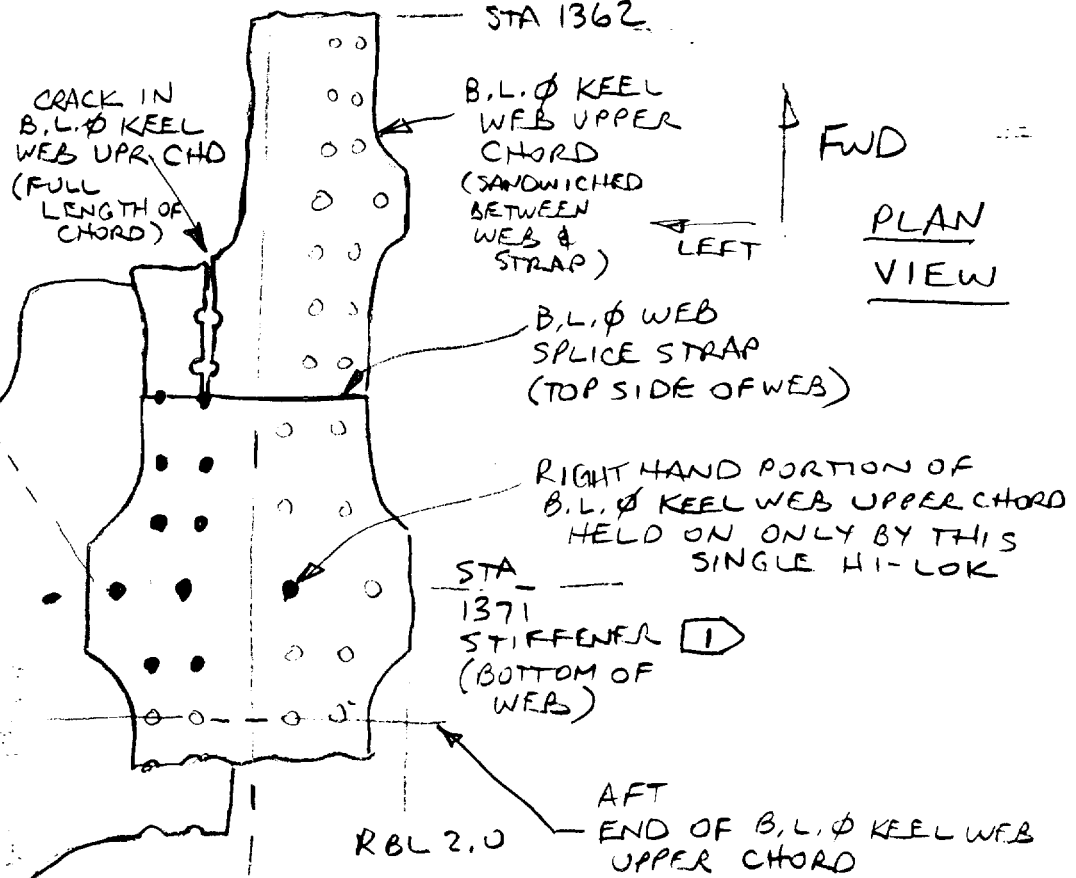 STA 1362
CRACK IN
B.L.Ø KEEL
WEB UPR CHD
(FULL
LENGTH OF
CHORD)
B.L.Ø KEEL
WEB UPPER
CHORD
(SANDWICHED
BETWEEN
WEB &
STRAP)
FWD
LEFT
PLAN
VIEW
B.L.Ø WEB
SPLICE STRAP
(TOP SIDE OF WEB)
RIGHT HAND PORTION OF
B.L.Ø KEEL WEB UPPER CHORD
HELD ON ONLY BY THIS
SINGLE HI-LOK
STA
1371
STIFFENER 1
(BOTTOM OF
WEB)
RBL 2.0
AFT
END OF B.L.Ø KEEL WEB
UPPER CHORD